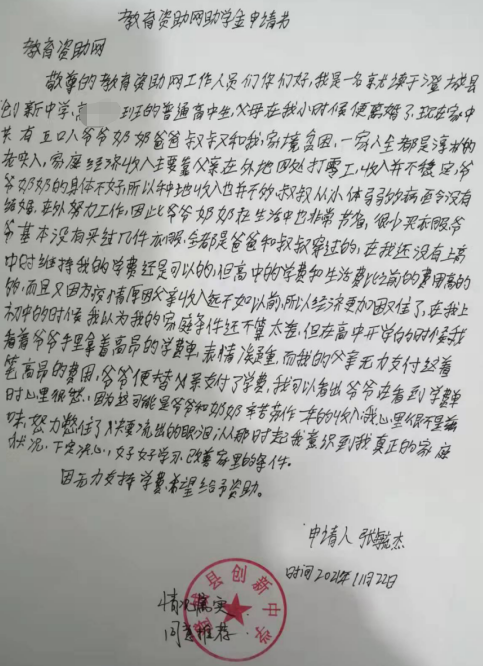 教育资助网助学金申请书
教育资助网
敬尊的教育资助网工作人员们你们好,我是一名就读于澄城县
创新中学,高 班的普通高中生,父母在我小时候便离婚了,现在家中
共有五口人爷爷奶奶爸爸叔叔和我,家境贫困,一家人全都是淳朴的
农民人,家庭经济收入主要靠父亲在外地四处打零工,收入并不稳定,爷
爷奶奶的身体不好所以种地收入也并不多,叔叔从小体弱多病至今没有
结婚,在外努力工作,因此爷爷奶奶在生活中也非常节省,很少买衣服,爷
爷基本没有买过几件衣服,全都是爸爸和叔叔穿过的,在我还没有上高
中时维持我的学费还是可以的,但高中的学费和生活费比之前的费用高的
多的,而且又因为疫情原因父亲收入远不如以前,所以经济更加困住了,在我上
初中的时候我以为我的家庭条件还不算太差,但在高中开学的时候我
看着爷爷手里拿着高昂的学费单,表情凝重,而我的父亲无力支付这着
笔高昂的费用,爷爷便替父亲支付了学费,我可以看出爷爷在看到学费单
时心里很愁,因为这可能是爷爷和奶奶辛苦劳作一年的收入,我心里很不是滋
味,努力憋住了快要流出的眼泪,从那时起我意识到我真正的家庭
状况,下定决心,好好学习,改善家里的条件。
因无力支持学费,希望给予资助。
申请人 张毓杰
时间 2021年11月22日
情况属实
同意推荐
县创新中学